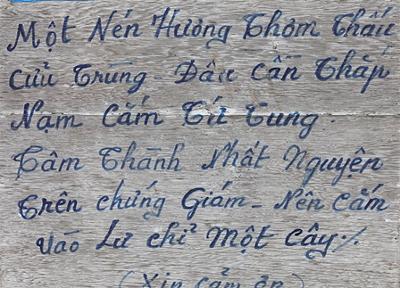 Một Nén Hương Thơm Thấu
Cửu Trùng - Đâu Cần Thắp
Nạm Cắm Tứ Tung
Tâm Thành Nhất Nguyện
Trên chứng Giám - Nên Cắm
Vào Lư chỉ Một Cây ./.
(Xin cảm ơn)